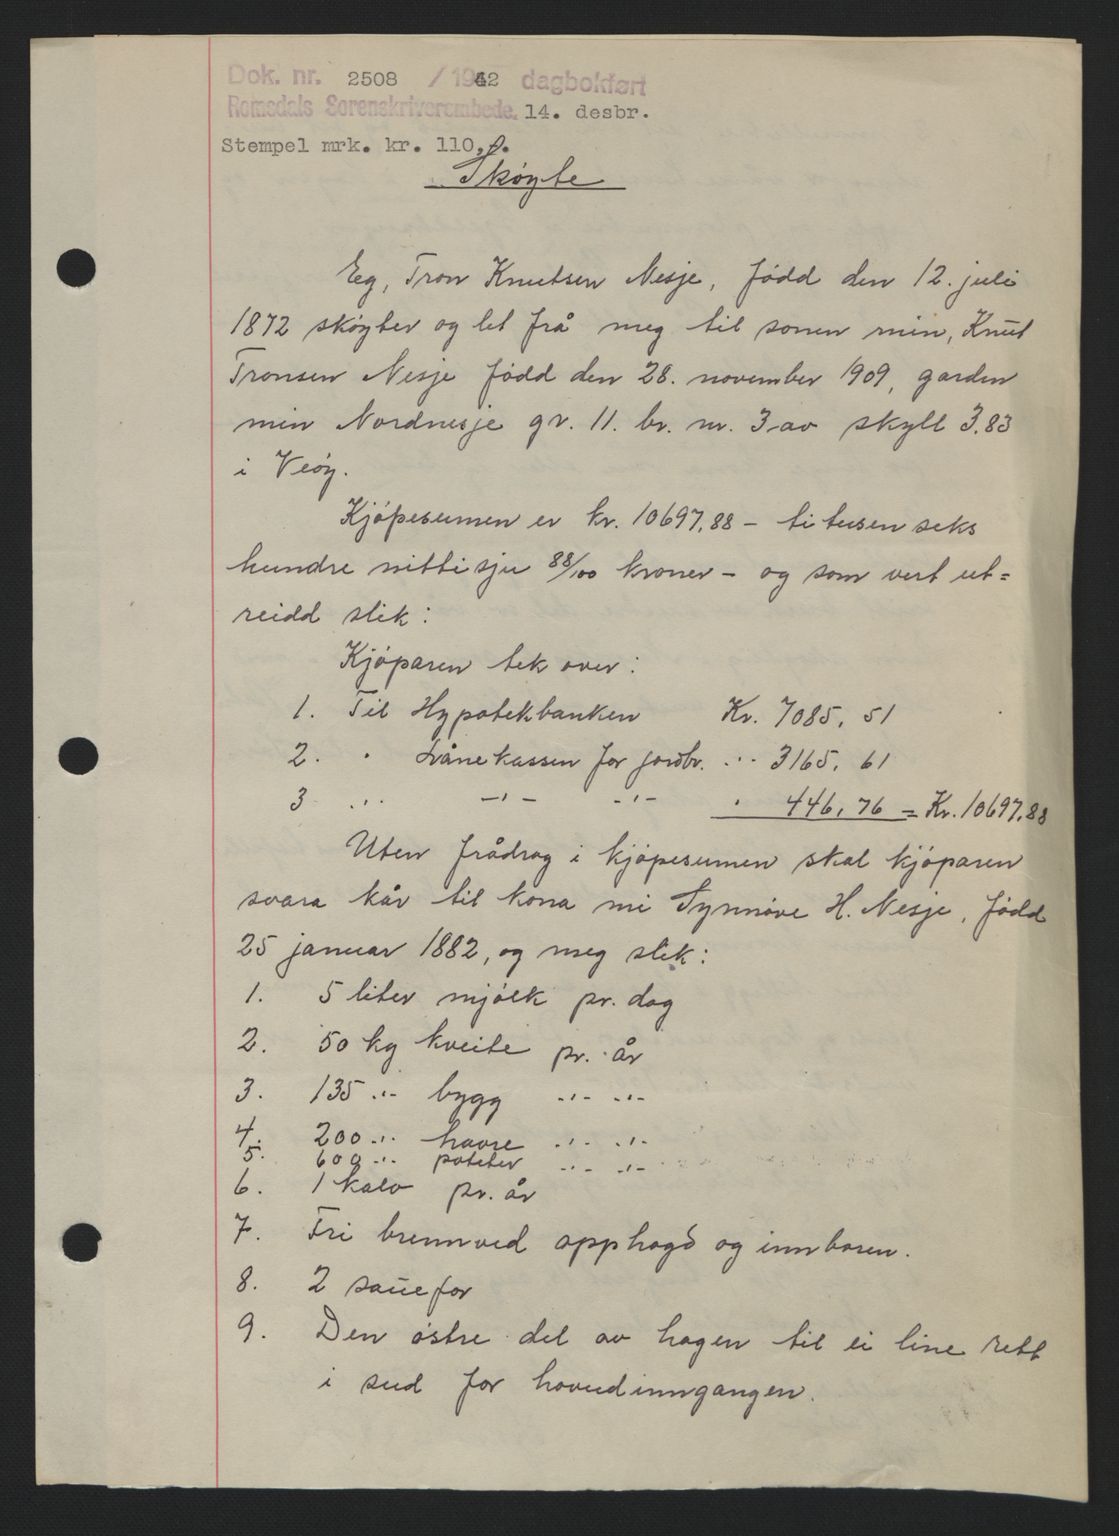 Dok. nr. 2508 / 1942 dagbokført
Romsdals Sorenskriverembede. 14. desbr.
Stempel mrk. kr. 110,
Skøyte
Eg, Tron Knutsen Nesje, fødd den 12. juli
1872 skøyter og let frå meg til sonen min, Knut
Tronsen Nesje fødd den 28. november 1909, garden
min Nordnesje gr. 11. br. nr. 3 av skyll 3.83
i Veøy.
Kjøpesumen er kr. 10697,88 – ti tusen seks
hundre nitti sju 88/100 kroner – og som vert ut=
reidd slik:
Kjøparen tek over:
1. Til Hypotekbanken Kr. 7085, 51
2. " Lånekassen for jordbr. " 3165, 61
3 " -"- -"- " 446,76 = Kr. 10697,88
Uten frådrag i kjøpesumen skal kjøparen
svara kår til kona mi Synnøve H. Nesje, fødd
25 januar 1882, og meg slik:
1. 5 liter mjølk pr. dag
2. 50 kg kveite pr. år
3. 135 " bygg -"- -"-
4. 200 " havre -"- -"-
5. 600 " poteter -"- -"-
6. 1 kalv pr. år
7. Fri brennved opphogd og innboren.
8. 2 sauefor
9. Den østre del av hagen til ei line rett
i sud for hovudinngangen.